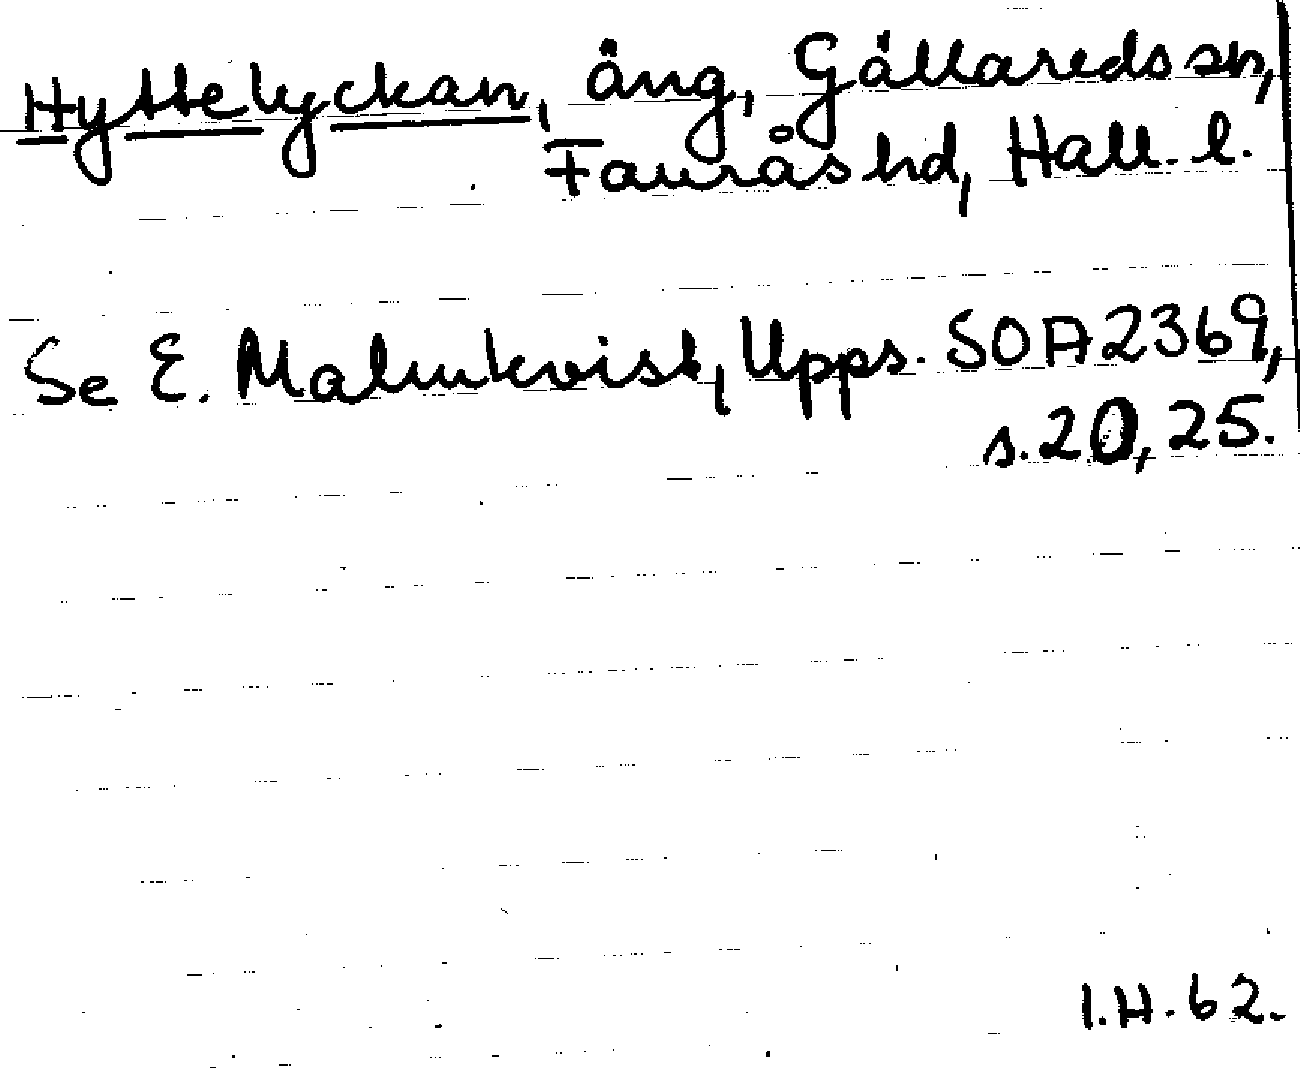 Hyttelyckan, äng, Gällareds sn,
Faurås hd, Hall. l.
Se E. Malmkvist, Upps. SOA 2369,
s. 20, 25.
I.H. 62.